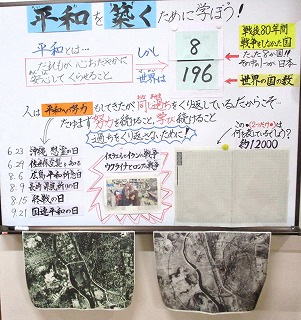 平和を築くために学ぼう!
平和とは…
だれもが心おだやかに
安心してくらせること
しかし
世界は
8
196
戦後80年間
戦争をしなかった国
たった8か国!!
そのうちの1つが日本
世界の国の数
人は平和への努力もしてきたが同じ過ちをくり返している だからこそ
たゆまず努力を続けること、学び続けること
過ちをくり返さないために!
6.23 沖縄 慰霊の日
6.29
8.6 広島 平和祈念日
8.9 長崎
8.15 終戦の日
9.21 国連平和の日
イスラエルとイランの戦争
ウクライナとロシアの戦争
この
何を表しているでしょう?
約12000